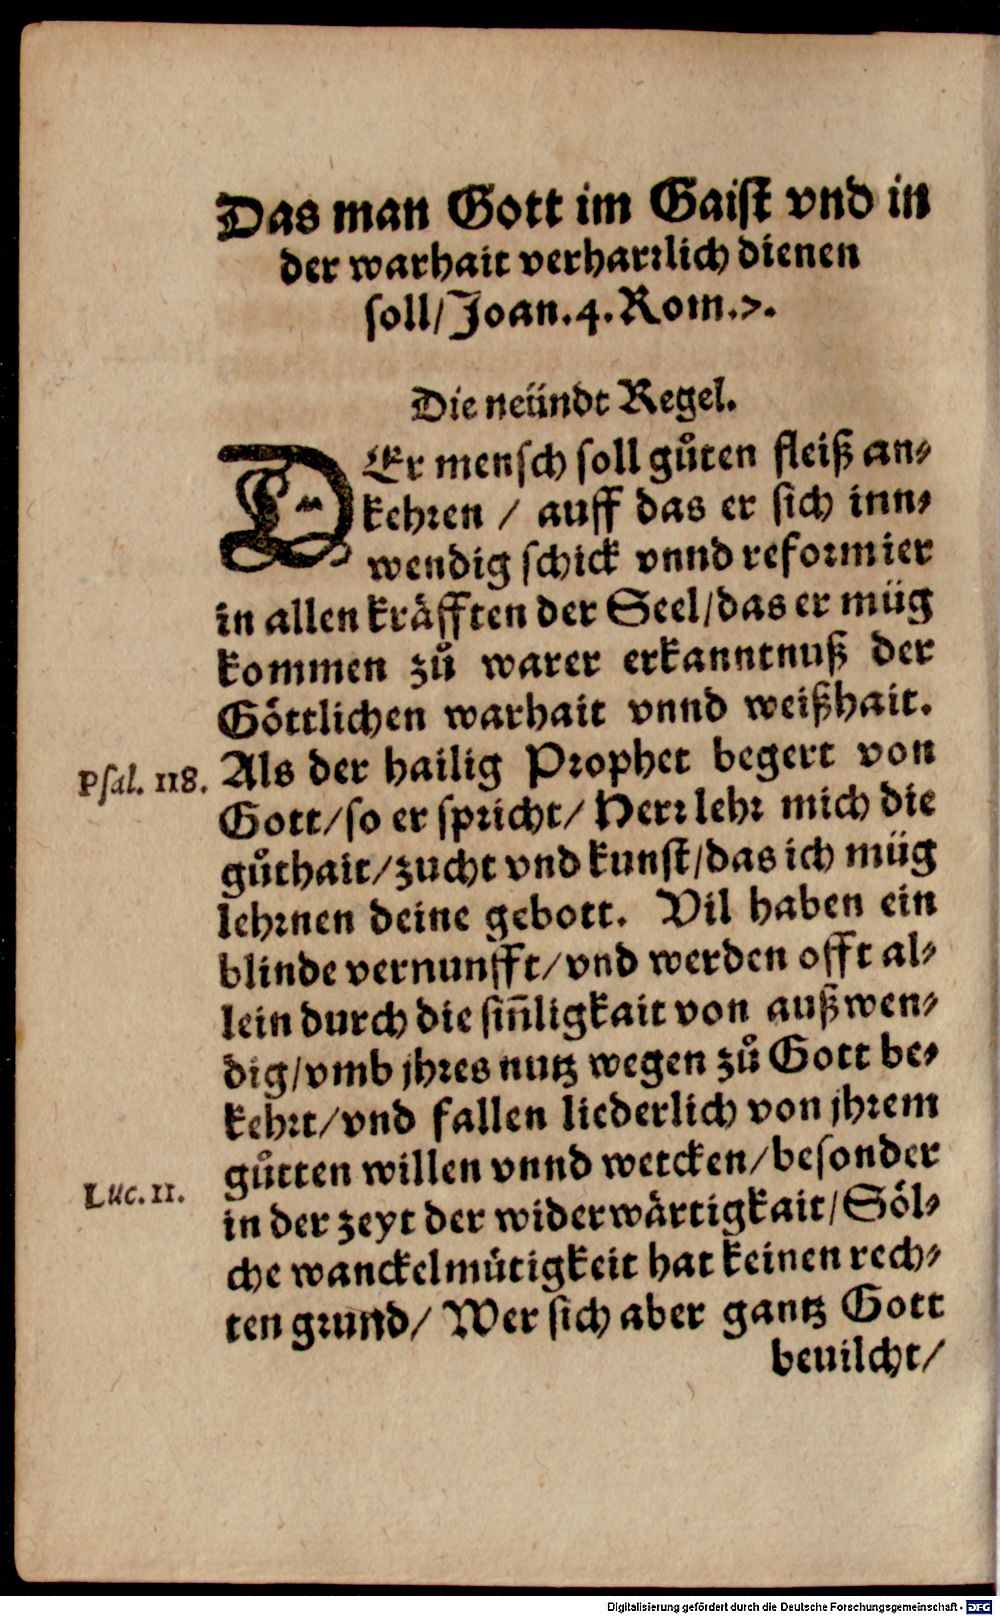 Das man Gott im Gaiſt vnd in
der warhait verharꝛlich dienen
ſoll/ Joan. 4. Rom. 7.
Die neündt Regel.
DEr menſch ſoll gůten fleiß an⸗
kehꝛen / auff das er ſich inn⸗
wendig ſchick vnnd refoꝛmier
in allen kräfften der Seel/ das er müg
kommen zů warer erkanntnuß der
Göttlichen warhait vnnd weißhait.
Psal. 118. Als der hailig Pꝛophet begert von
Gott/ ſo er ſpꝛicht/ Herꝛ lehꝛ mich die
gůthait/ zucht vnd kunſt/ das ich müg
lehꝛnen deine gebott. Vil haben ein
blinde vernunfft/ vnd werden offt al⸗
lein durch die ſiñligkait von außwen⸗
dig/ vmb jhꝛes nutz wegen zů Gott be⸗
kehꝛt/ vnd fallen liederlich von jhꝛem
Luc. 11. gůtten willen vnnd wercken/ beſonder
in der zeyt der widerwärtigkait/ Söl⸗
che wanckelmütigkeit hat keinen rech⸗
ten gꝛund/ Wer ſich aber gantz Gott
beuilcht/
Digitalisierung gefördert durch die Deutsche Forschungsgemeinschaft - DFG